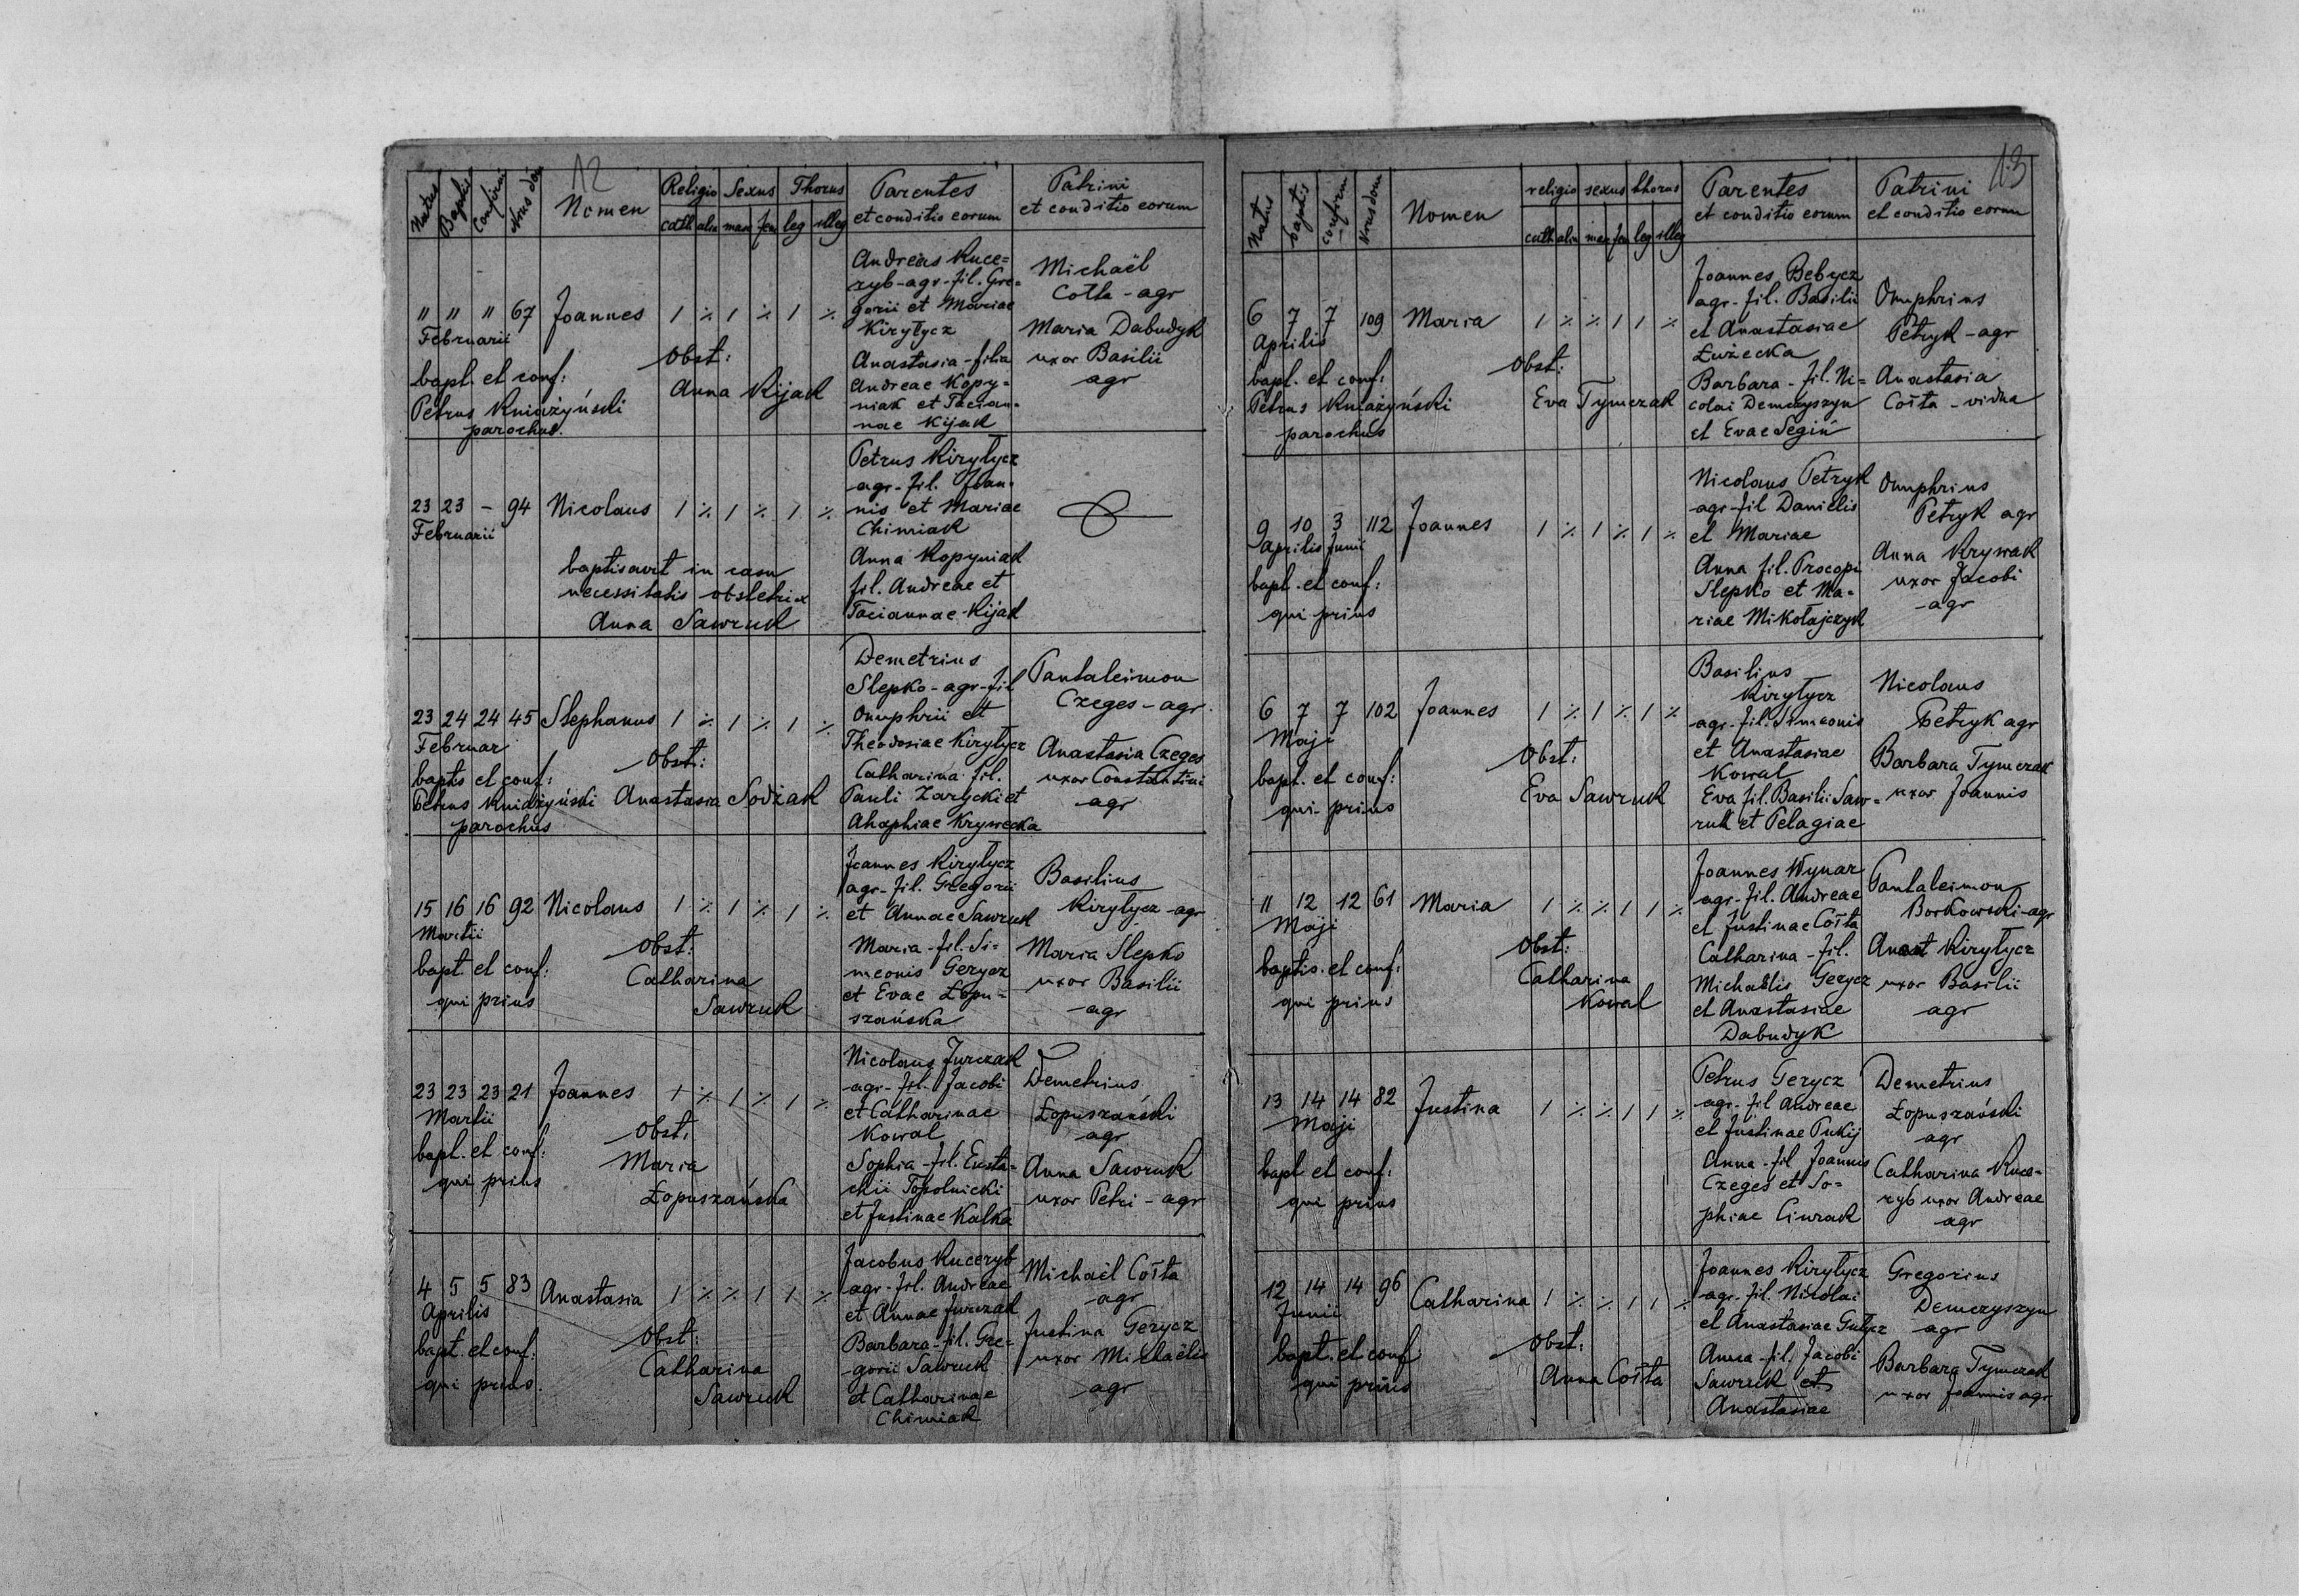 12
Natus Baptis Confirm Nrus dom Nomen Religio Sexus Thorus Parentes et conditio eorum Patrini et conditio eorum
cath alia masc fem leg illeg
" " " 67 Joannes 1 % 1 % 1 %
Februarii
bapt. et conf:
Petrus Kniażyński
parochus.
Obst:
Anna Kijak
Andreas Kuce=
ryb-agr-fil. Gre=
gorii et Mariae
Kiryłycz
Anastasia-filia
Andreae Kopy=
niak et Tacian=
nae Kijak
Michaël
Cotła - agr
Maria Dabudyk
uxor Basilii
agr
23 23 - 94 Nicolaus 1 % 1 % 1 %
Februarii
baptisavit in casu
necessitatis obstetrix
Anna Sawruk
Petrus Kiryłycz
agr-fil. Joan=
nis et Mariae
Chimiak
Anna Kopyniak
fil. Andreae et
Taciannae Kijak
23 24 24 45 Stephanus 1 % 1 % 1 %
Februar
baptis et conf:
Petrus Kniażyński
parochus
Obst:
Anastasia Sodżak
Demetrius
Slepko-agr-fil
Onuphrii et
Theodosiae Kiryłycz
Catharina fil.
Pauli Zarycki et
Ahaphiae Krywecka
Pantaleimon
Czeges-agr.
Anastasia Czeges
uxor Constantini
agr
15 16 16 92 Nicolaus 1 % 1 % 1 %
Martii
bapt et conf:
qui prius
Obst:
Catharina
Sawruk
Joannes Kiryłycz
agr-fil. Gregorii
et Annae Sawruk
Maria-fil. Si=
meonis Gerycz
et Evae Łopu=
szańska
Basilius
Kiryłycz-agr
Maria Slepko
uxor Basilii
agr
23 23 23 21 Joannes 1 % 1 % 1 %
Martii
bapt. et conf:
qui prius
Obst:
Maria
Łopuszańska
Nicolaus Jurczak
agr-fil. Jacobi
et Catharinae
Kowal
Sophia-fil. Eusta=
chii Topolnicki
et Justinae Kalka
Demetrius
Łopuszański
agr
Anna Sawruk
uxor Petri-agr
4 5 5 83 Anastasia 1 % % 1 1 %
Aprilis
bapt. et conf:
qui prius.
Obst:
Catharina
Sawruk
Jacobus Kuceryb
agr-fil. Andreae
et Annae Jurczak
Barbara-fil. Gre=
gorii Sawruk
et Catharinae
Chimiak
Michaël Cotła
agr
Justina Gerycz
uxor Michaëlis
agr
13
Natus baptis confirm Nrus dom Nomen religio sexus thorus Parentes et conditio eorum Patrini et conditio eorum
cath alia mas fem leg illeg
6 7 7 109 Maria 1 % % 1 1 %
Aprilis
bapt. et conf:
Petrus Kniażyński
parochus
Obst:
Eva Tymczak
Joannes Bebycz
agr-fil. Basilii
et Anastasiae
Łużecka
Barbara-fil. Ni=
colai Demczyszyn
et Evae Segiń
Onuphrius
Petryk-agr
Anastasia
Cotła-vidua
9 10 3 112 Joannes 1 % 1 % 1 %
Aprilis Junii
bapt. et conf:
qui prius
Nicolaus Petryk
agr-fil Danielis
et Mariae
Anna fil. Procopi
Slepko et Ma=
riae Mikołajczyk
Onuphrius
Petryk agr
Anna Krywak
uxor Jacobi
-agr
6 7 7 102 Joannes 1 % 1 % 1 %
Maji
bapt. et conf:
qui prius
Obst:
Eva Sawruk
Basilius
Kiryłycz
agr-fil. Simeonis
et Anastasiae
Kowal
Eva fil. Basilii Saw=
ruk et Pelagiae
Nicolaus
Petryk agr
Barbara Tymczak
uxor Joannis
11 12 12 61 Maria 1 % % 1 1 %
Maji
baptis. et conf:
qui prius
Obst:
Catharina
Kowal
Joannes Wynar
agr-fil. Andreae
et Justinae Cotła
Catharina-fil.
Michaëlis Gerycz
et Anastasiae
Dabudyk
Pantaleimon
Borkowski-agr
Anast Kiryłycz
uxor Basilii
agr
13 14 14 82 Justina 1 % % 1 1 %
Maji
bapt et conf:
qui prius
Petrus Gerycz
agr-fil Andreae
et Justinae Pukij
Anna-fil Joannis
Czeges et So=
phiae Ciurak
Demetrius
Łopuszański
agr
Catharina Kuce=
ryb uxor Andreae
agr
12 14 14 96 Catharina 1 % % 1 1 %
Junii
bapt. et conf
qui prius
Obst:
Anna Cotła
Joannes Kiryłycz
agr-fil. Nicolai
et Anastasiae
Anna-fil. Jacobi
Sawruk et
Anastasiae
Gregorius
Demczyszyn
agr
Barbara Tymczak
uxor Joannis agr